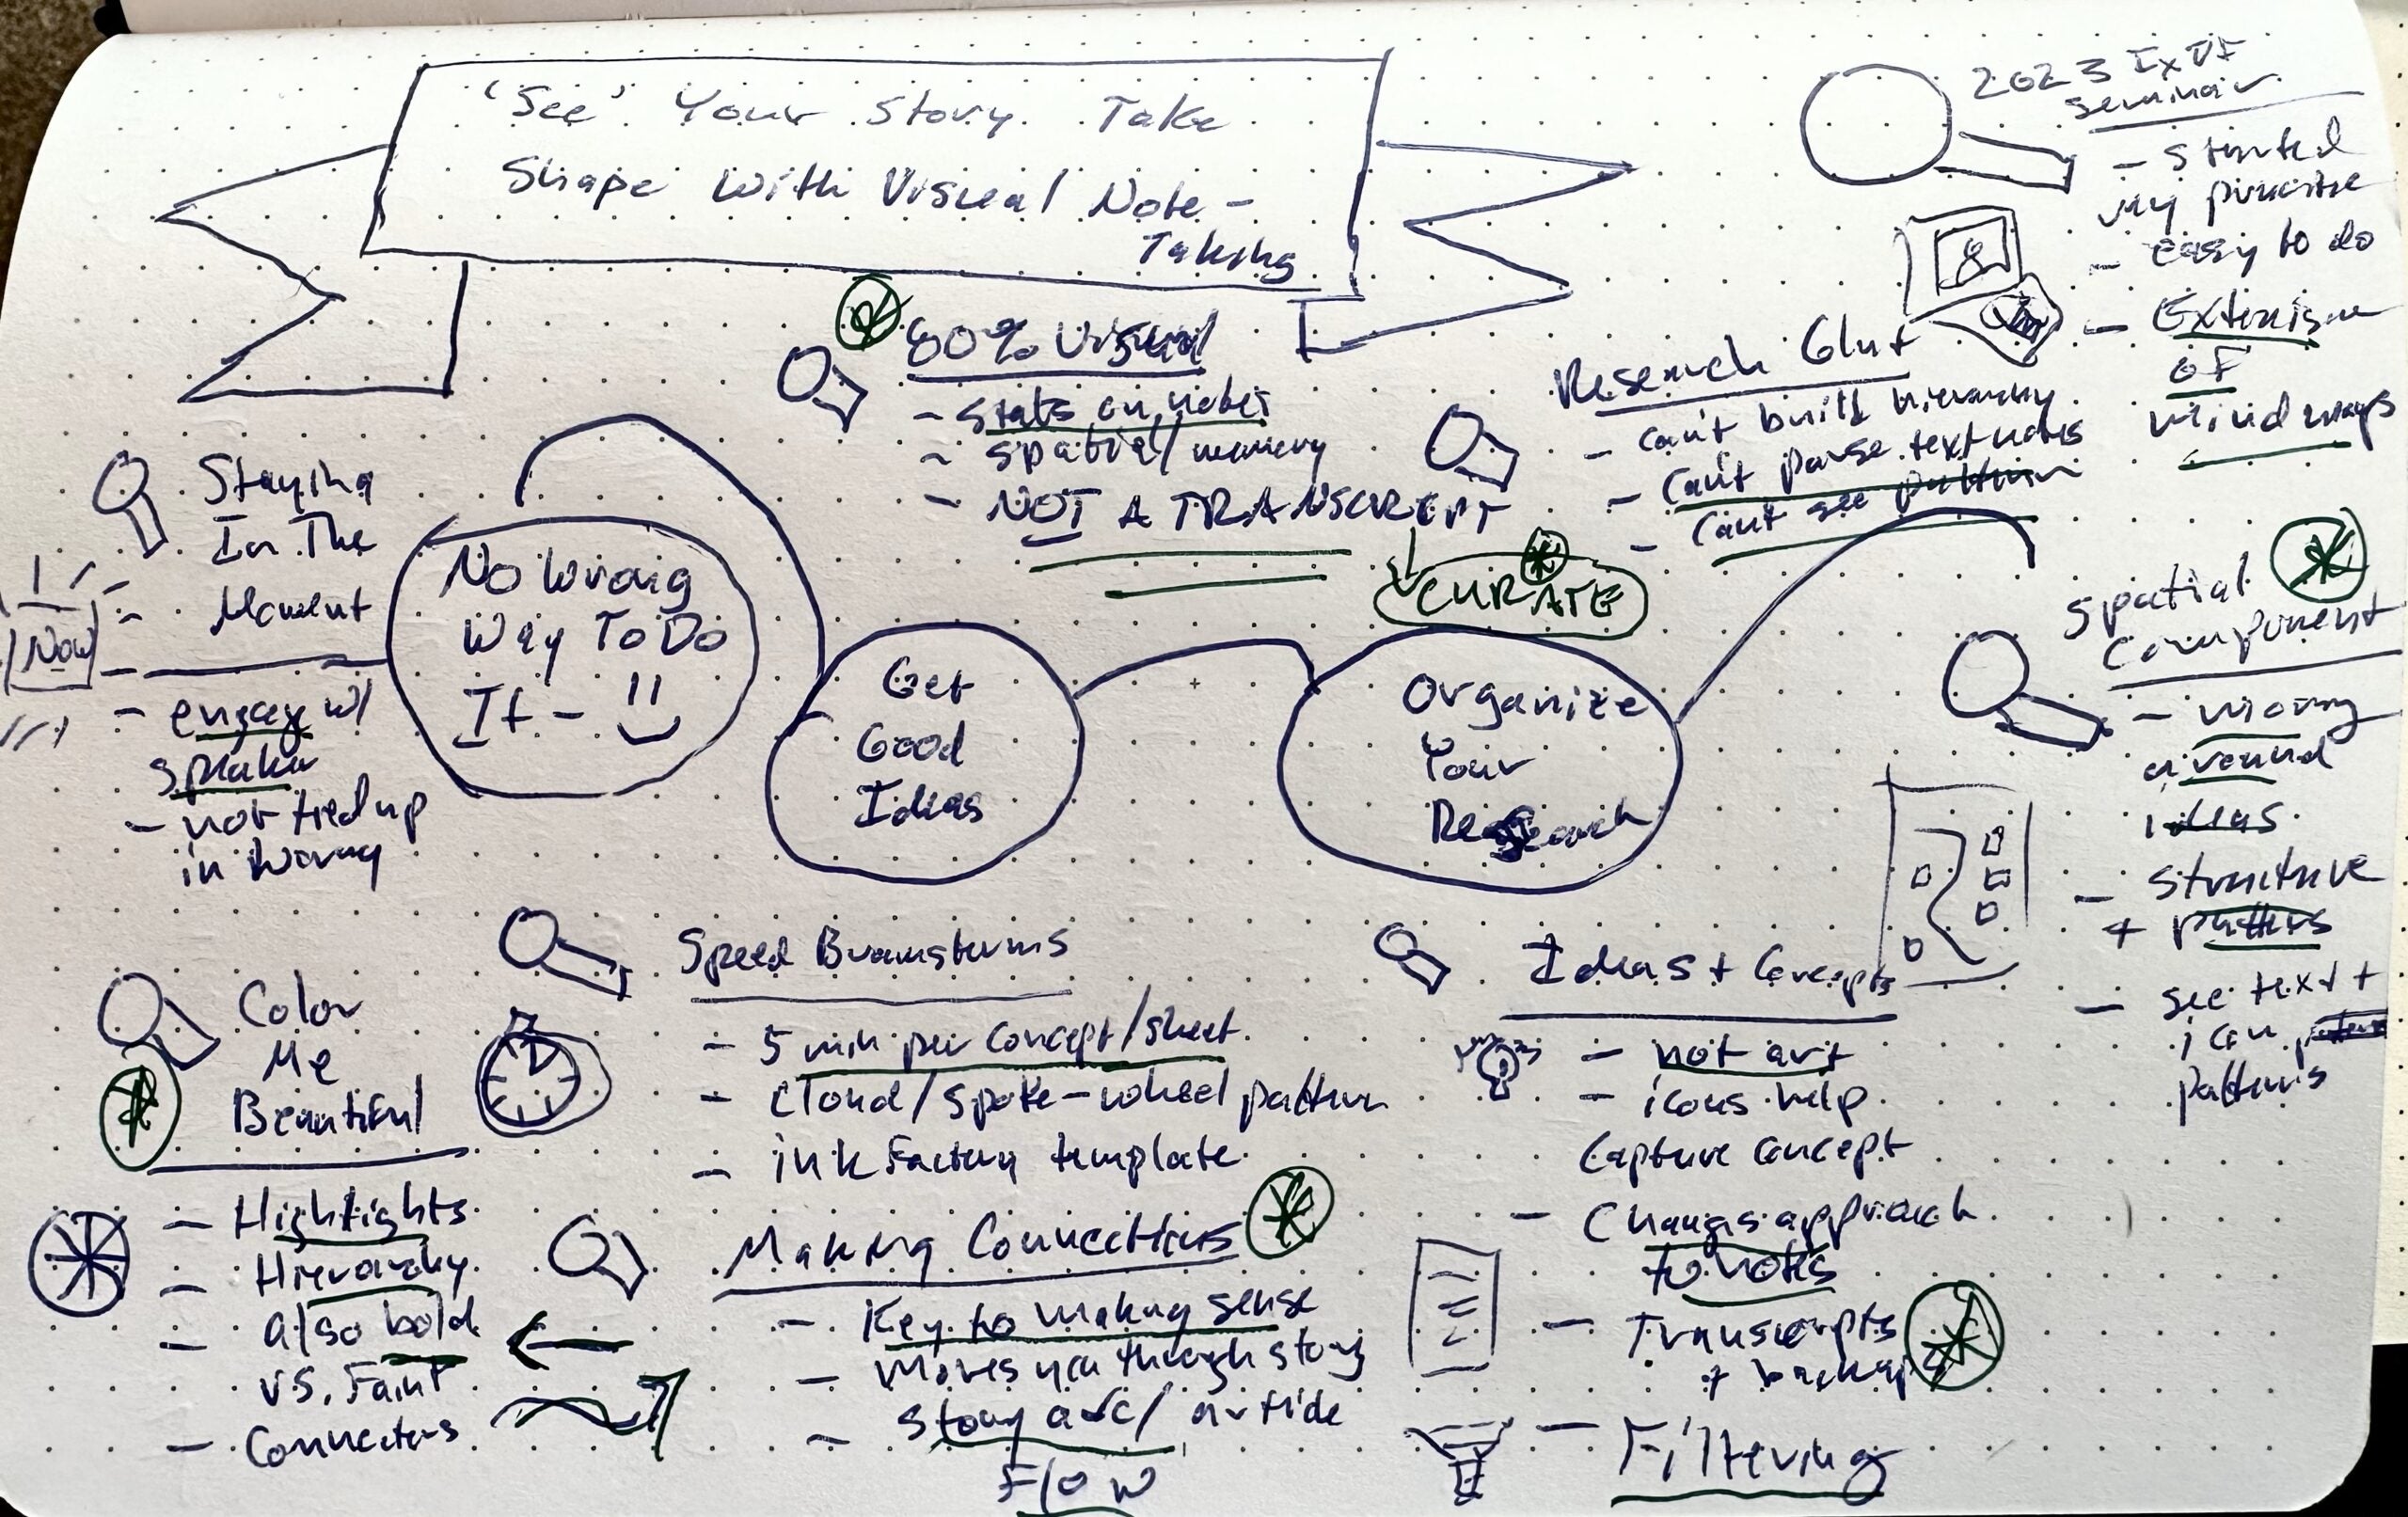 "See" Your Story Take
Shape With Visual Note-
Taking
2023 IxDF
Seminar
- started
my practise
- easy to do
- Extension
of
mind maps
80% Visual
- Stats on notes
- spatial/memory
- NOT A TRANSCRIPT
CURATE
Research Glut
- can't build hierarchy
- Can't parse text notes
- Can't see pattern
Staying
In The
Moment
Now
- engage w/
speaker
- not tied up
in wrong
No Wrong
Way To Do
It -
Get
Good
Ideas
Organize
Your
Research
Spatial
Component
- moving
around
ideas
- structure
+ patterns
- see text +
icon
patterns
Color
Me
Beautiful
- Highlights
- Hierarchy
- also bold
vs. Faint
- Connectors
Speed Brainstorms
- 5 min per concept/sheet
- cloud/spoke-wheel pattern
- ink Factory template
Making Connections
- Key to making sense
- Moves you through story
- story arc/ article
Flow
Ideas + Concepts
- not art
- icons help
capture concept
- Changes approach
to notes
- Transcripts
+ backup
- Filtering